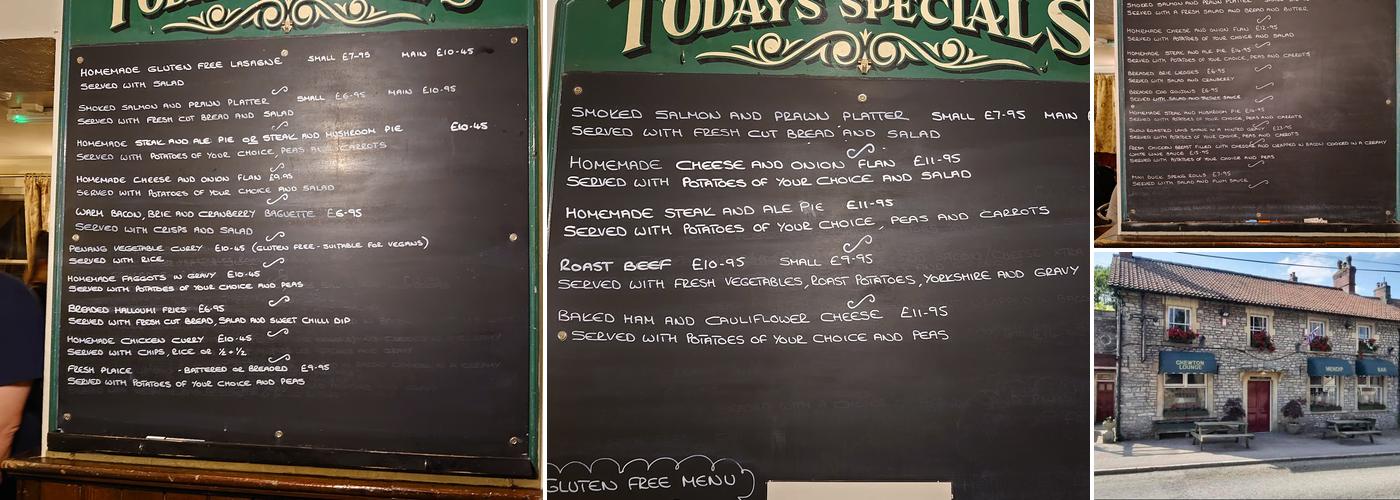 HOMEMADE GLUTEN FREE LASAGNE SMALL £7-95 MAIN £10-45
SERVED WITH SALAD
SMOKED SALMON AND PRAWN PLATTER SMALL £6-95 MAIN £10-95
SERVED WITH FRESH CUT BREAD AND SALAD
HOMEMADE STEAK AND ALE PIE OR STEAK AND MUSHROOM PIE £10-45
SERVED WITH POTATOES OF YOUR CHOICE, PEAS AND CARROTS
HOMEMADE CHEESE AND ONION FLAN £9.95
SERVED WITH POTATOES OF YOUR CHOICE AND SALAD
WARM BACON, BRIE AND CRANBERRY BAGUETTE £6-95
SERVED WITH CRISPS AND SALAD
PENANG VEGETABLE CURRY £10-45 (GLUTEN FREE - SUITABLE FOR VEGANS)
SERVED WITH RICE
HOMEMADE FAGGOTS IN GRAVY £10-45
SERVED WITH POTATOES OF YOUR CHOICE AND PEAS
BREADED HALLOUMI FRIES £6-95
SERVED WITH FRESH CUT BREAD, SALAD AND SWEET CHILLI DIP
HOMEMADE CHICKEN CURRY £10-45
SERVED WITH CHIPS, RICE OR ½+½
FRESH PLAICE - BATTERED OR BREADED £9-95
SERVED WITH POTATOES OF YOUR CHOICE AND PEAS
TODAYS SPECIALS
SMOKED SALMON AND PRAWN PLATTER SMALL £7-95 MAIN
SERVED WITH FRESH CUT BREAD AND SALAD
HOMEMADE CHEESE AND ONION FLAN £11-95
SERVED WITH POTATOES OF YOUR CHOICE AND SALAD
HOMEMADE STEAK AND ALE PIE £11-95
SERVED WITH POTATOES OF YOUR CHOICE, PEAS AND CARROTS
ROAST BEEF £10-95 SMALL £9-95
SERVED WITH FRESH VEGETABLES, ROAST POTATOES, YORKSHIRE AND GRAVY
BAKED HAM AND CAULIFLOWER CHEESE £11-95
SERVED WITH POTATOES OF YOUR CHOICE AND PEAS
GLUTEN FREE MENU
SMOKED SALMON AND PRAWN PLATTER
SERVED WITH A FRESH SALAD AND BREAD AND BUTTER
HOMEMADE CHEESE AND ONION FLAN £12-95
SERVED WITH POTATOES OF YOUR CHOICE AND SALAD
HOMEMADE STEAK AND ALE PIE
SERVED WITH POTATOES OF YOUR CHOICE, PEAS AND CARROTS
BREADED BRIE WEDGES £6-95
SERVED WITH SALAD AND CRANBERRY
BREADED COD GOUJONS £6-95
SERVED WITH SALAD AND TARTAR SAUCE
HOMEMADE STEAK AND MUSHROOM PIE
SERVED WITH POTATOES OF YOUR CHOICE, PEAS AND CARROTS
SLOW ROASTED LAMB SHANK IN A MINTED GRAVY
SERVED WITH POTATOES OF YOUR CHOICE, PEAS AND CARROTS
FRESH CHICKEN BREAST FILLED WITH CHEDDAR AND WRAPPED IN BACON COOKED IN A CREAMY
WHITE WINE SAUCE £15-95
SERVED WITH POTATOES OF YOUR CHOICE AND PEAS
MINI DUCK SPRING ROLLS £7-95
SERVED WITH SALAD AND PLUM SAUCE
CHEWTON
LOUNGE
MENDIP
BAR